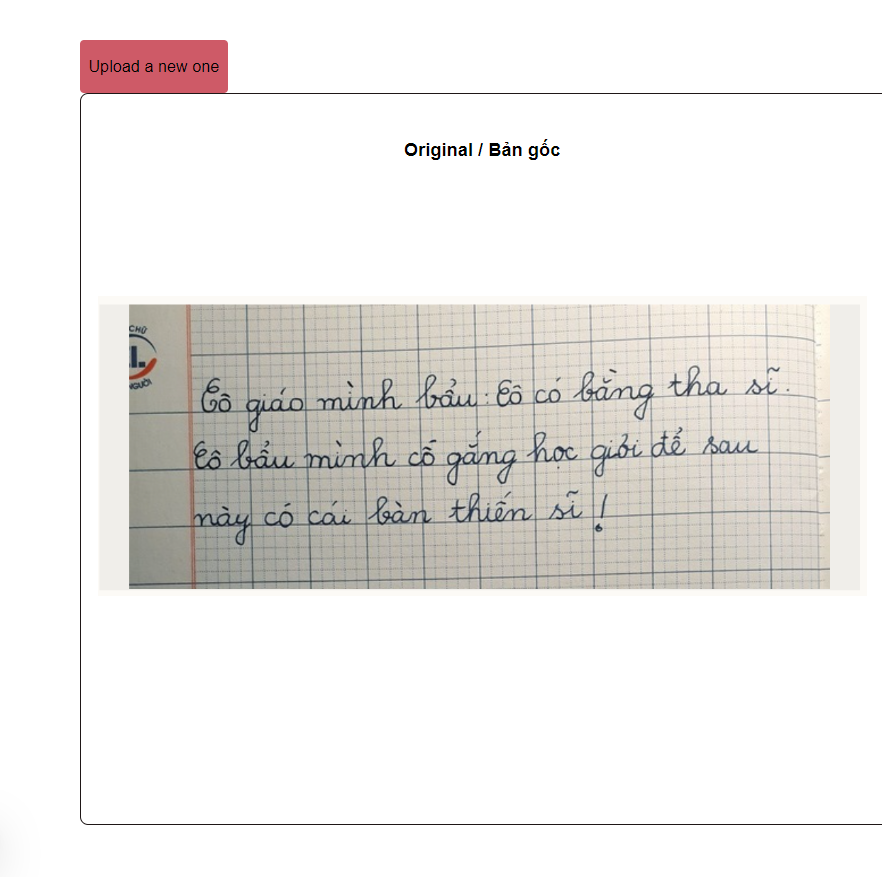 Upload a new one
Original / Bản gốc
CHỮ
L.
NGƯỜI
Cô giáo mình bẩu: Cô có bằng tha sĩ.
Cô bẩu mình cố gắng học giỏi để sau
này có cái bàn thiến sĩ!